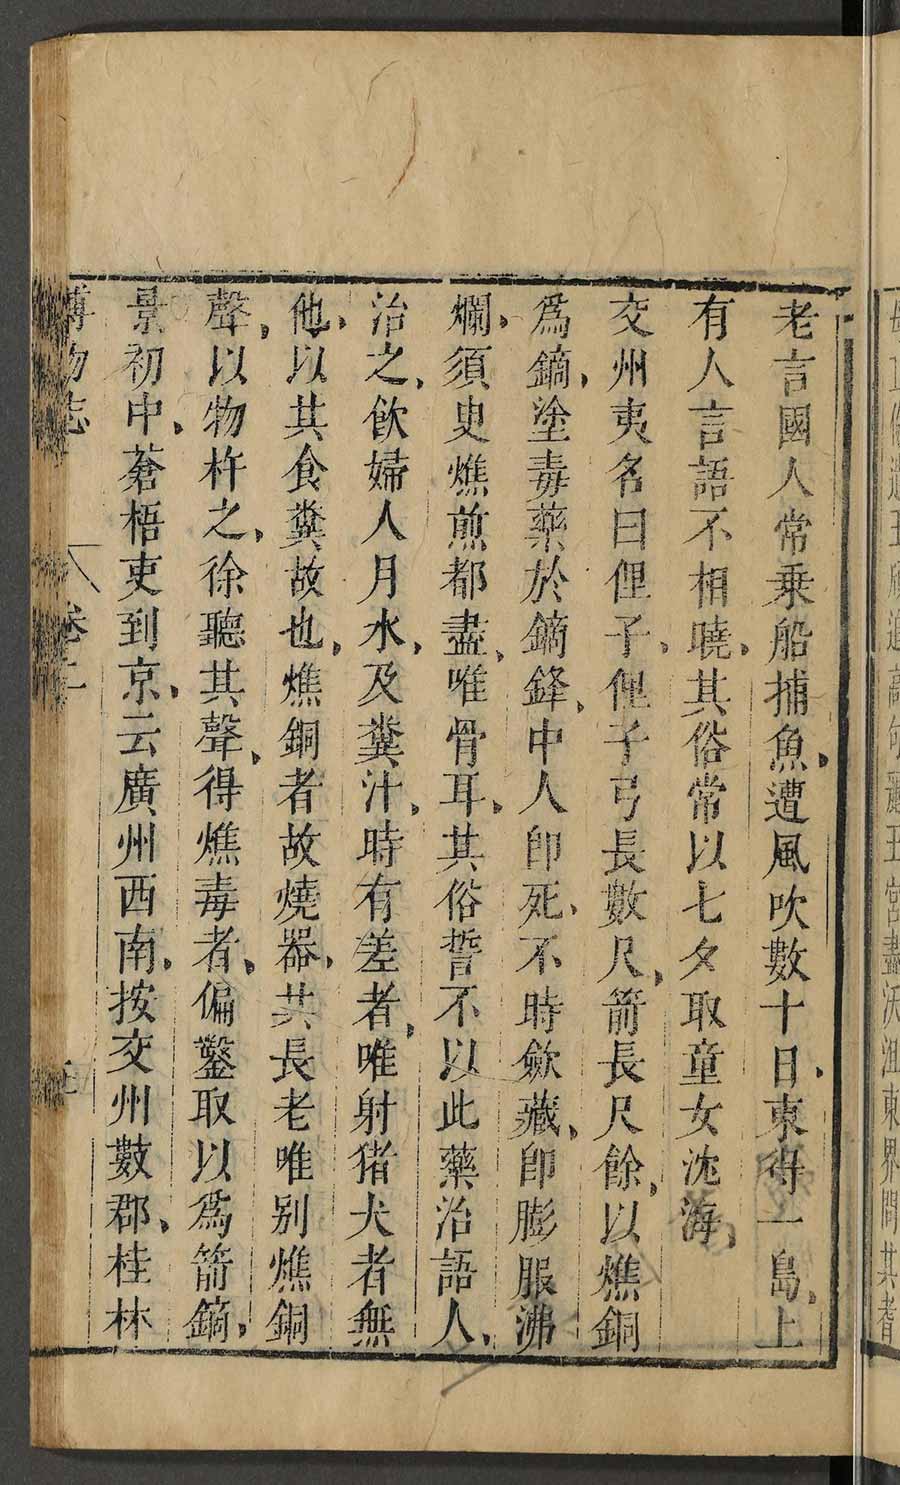 老言國人常乗船捕魚遭風吹數十日東得一島上
有人言語不相曉其俗常以七夕取童女沈海
交州夷名曰俚子俚子弓長數尺箭長尺餘以燋銅
爲鏑塗毒藥於鏑鋒中人卽死不時斂藏卽膨脹沸
爛須㬰燋煎都盡唯骨耳其俗誓不以此藥治語人
治之飲婦人月水及糞汁時有差者唯射猪犬者無
他以其食糞故也燋銅者故燒器其長老唯别燋銅
聲以物杵之徐聽其聲得燋毒者偏鑿取以爲箭鏑
景初中蒼梧吏到京云廣州西南按交州數郡桂林
博物志 卷二